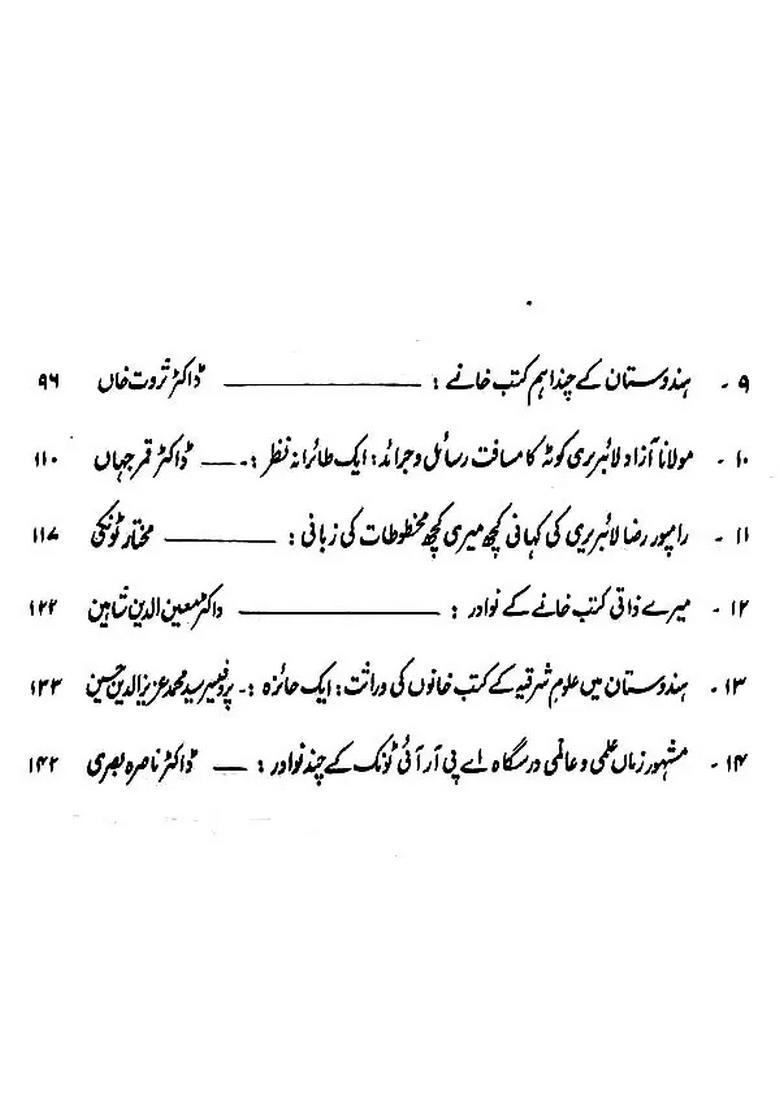 ۹ ۔ ہندوستان کے چند اہم کتب خانے : ڈاکٹر ثروت خاں ۹۶
۱۰ ۔ مولانا آزاد لائبریری کوٹہ کا مسافت رسائل و جرائد : ایک طائرانہ نظر :۔ ڈاکٹر قمر جہاں ۱۱۰
۱۱ ۔ رامپور رضا لائبریری کی کہانی کچھ میری کچھ مخطوطات کی زبانی : مختار ٹونکی ۱۱۷
۱۲ ۔ میرے ذاتی کتب خانے کے نوادر : ڈاکٹر معین الدین شاہین ۱۲۲
۱۳ ۔ ہندوستان میں علوم شرقیہ کے کتب خانوں کی وراثت : ایک جائزہ :۔ پروفیسر سید محمد عزیز الدین حسین ۱۳۳
۱۴ ۔ مشہور زماں علمی و عالمی درسگاہ اے پی آر آئی ٹونک کے چند نوادر : ڈاکٹر ناصرہ بصری ۱۴۲